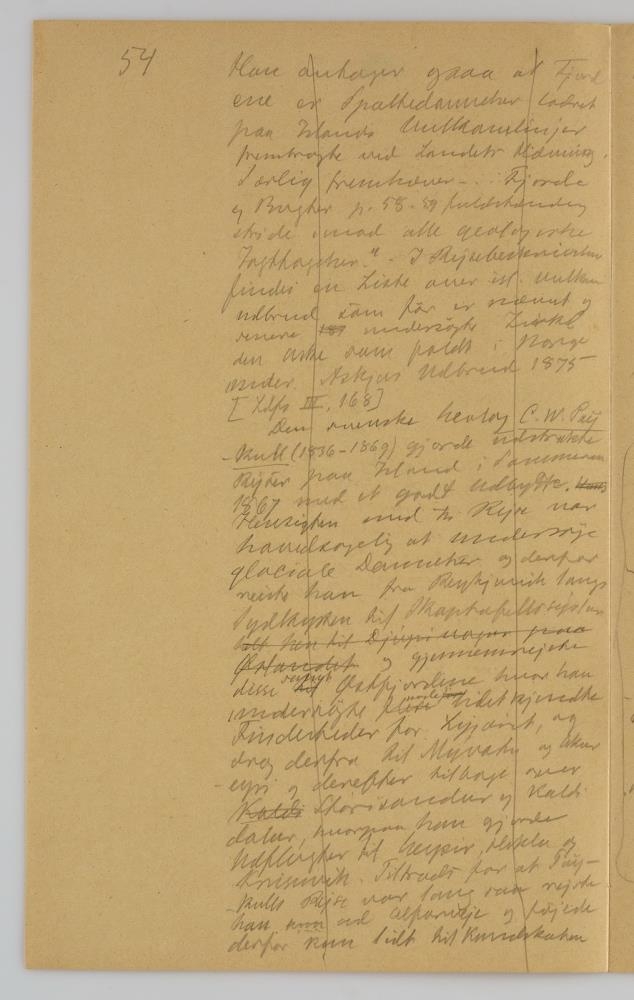 54
Han antager ogsaa at Fjord
ene er Spaltedannelser
paa Islands Vulkanlinjer
frembragte ved Landets Hævning.
Særlig fremhæver Fjorde
og Bugter p. 58-59 fuldstændig
stride imod alle geologiske
Iagttagelser." - I Rejsebeskrivelsen
findes en Liste over isl. Vulkan
udbrud som før er nævnt og
senere undersøgte Zirkel
den Aske som faldt i Norge
under Askjas Udbrud 1875
[Ldfs III, 168]
Den svenske Geolog C. W. Paij
-kull (1836-1869) gjorde udstrakte
Rejser paa Island i Sommeren
1867 med et godt Udbytte.
Hensigten med hs Rejse var
hovedsagelig at undersøge
glaciale Dannelser og derfor
rejste han fra Reykjavik langs
Sydkysten til Skaptafellssyslur
helt hen til Djupivogur paa
Østlandet og gjennemrejste
disse Østfjordene hvor han
undersøgte lidet kjendte
Findesteder for, og
drog derfra til Myvatn og Akur
-eyri og derefter tilbage over
Kaldi Storisandur og Kaldi
dalur, hvorpaa han gjorde
Udflugter til Geysir, Hekla og
Krisuvik. Tiltrods for at Paij-
-kulls Rejse var lang saa rejste
han kun ad Alfarveje og føjede
derfor kun lidt til Kundskaben